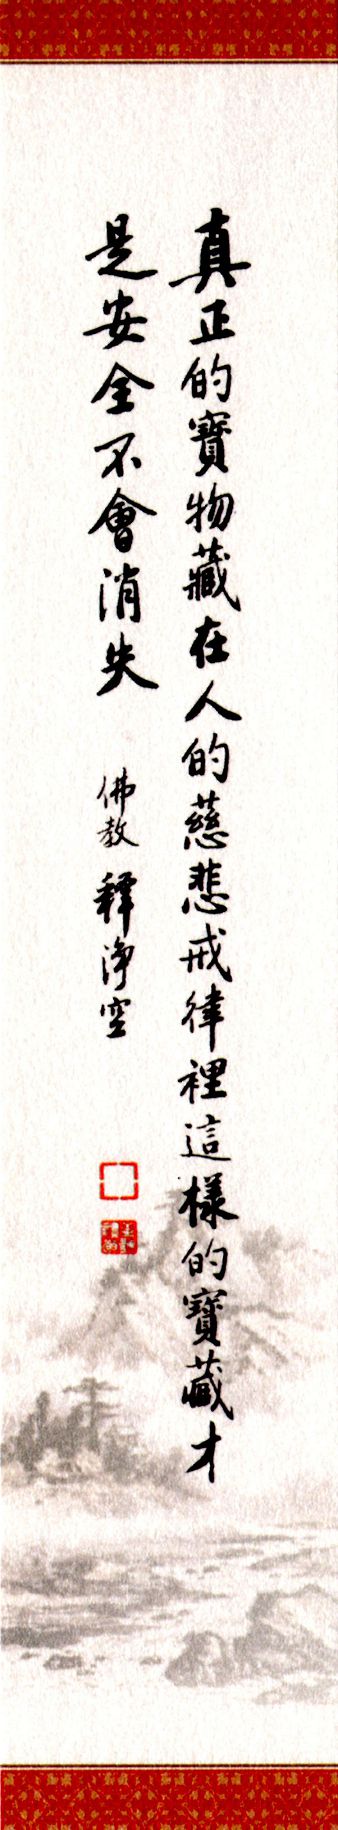 真正的寶物藏在人的慈悲戒律裡這樣的寶藏才
是安全不會消失
佛教 釋淨空